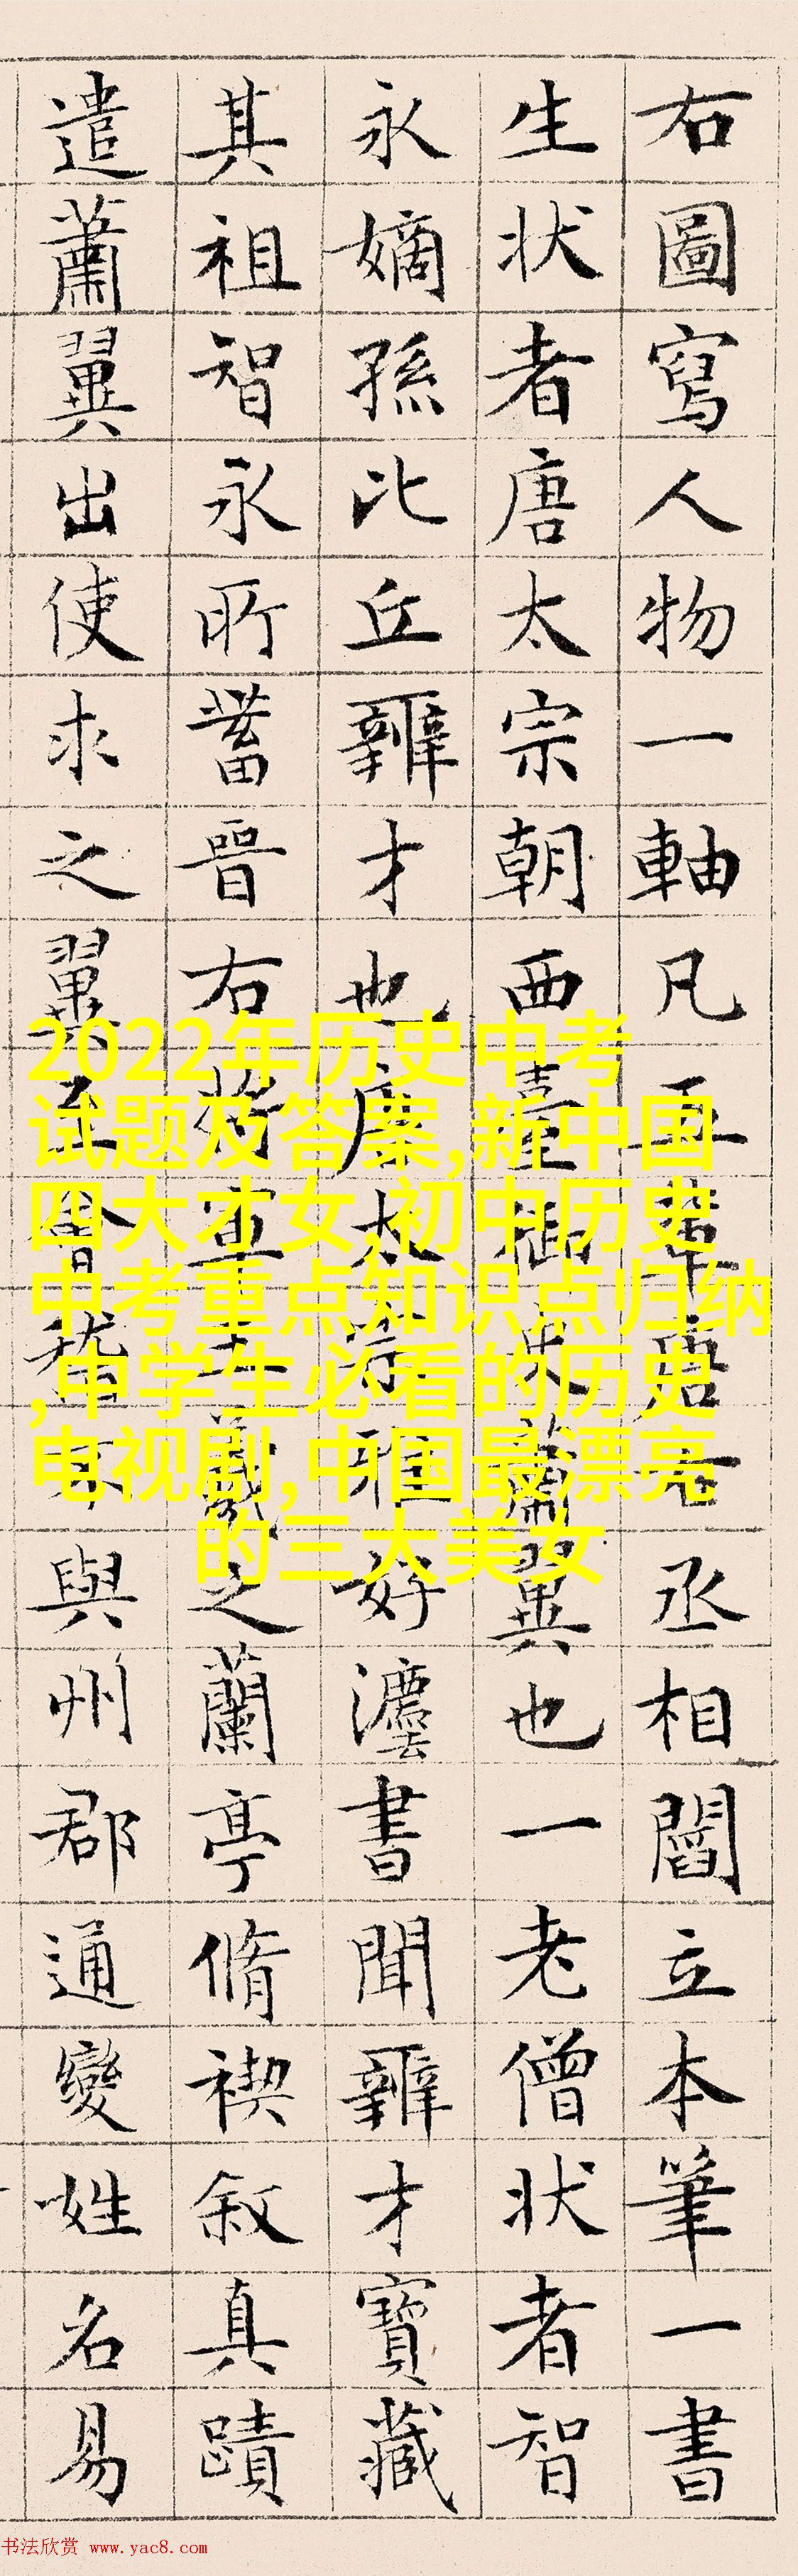 右圖寫人物一軸凡五輩唐右丞相閻立本筆一書
生状者唐太宗朝西臺御史蕭翼也一老僧状者智
永嫡孫比丘辨才也唐太宗雅好灋書聞辨才寶藏
其祖智永所蓄晉右將軍王羲之蘭亭脩禊敘真蹟
遣蕭翼出使求之翼至會稽不與州郡通變姓名易
2022年历史中考
试题及答案,新中国
四大才女,初中历史
中考重点知识点归纳
,中学生必看的历史
电视剧,中国最漂亮
的三大美女
书法欣赏 www.yac8.com